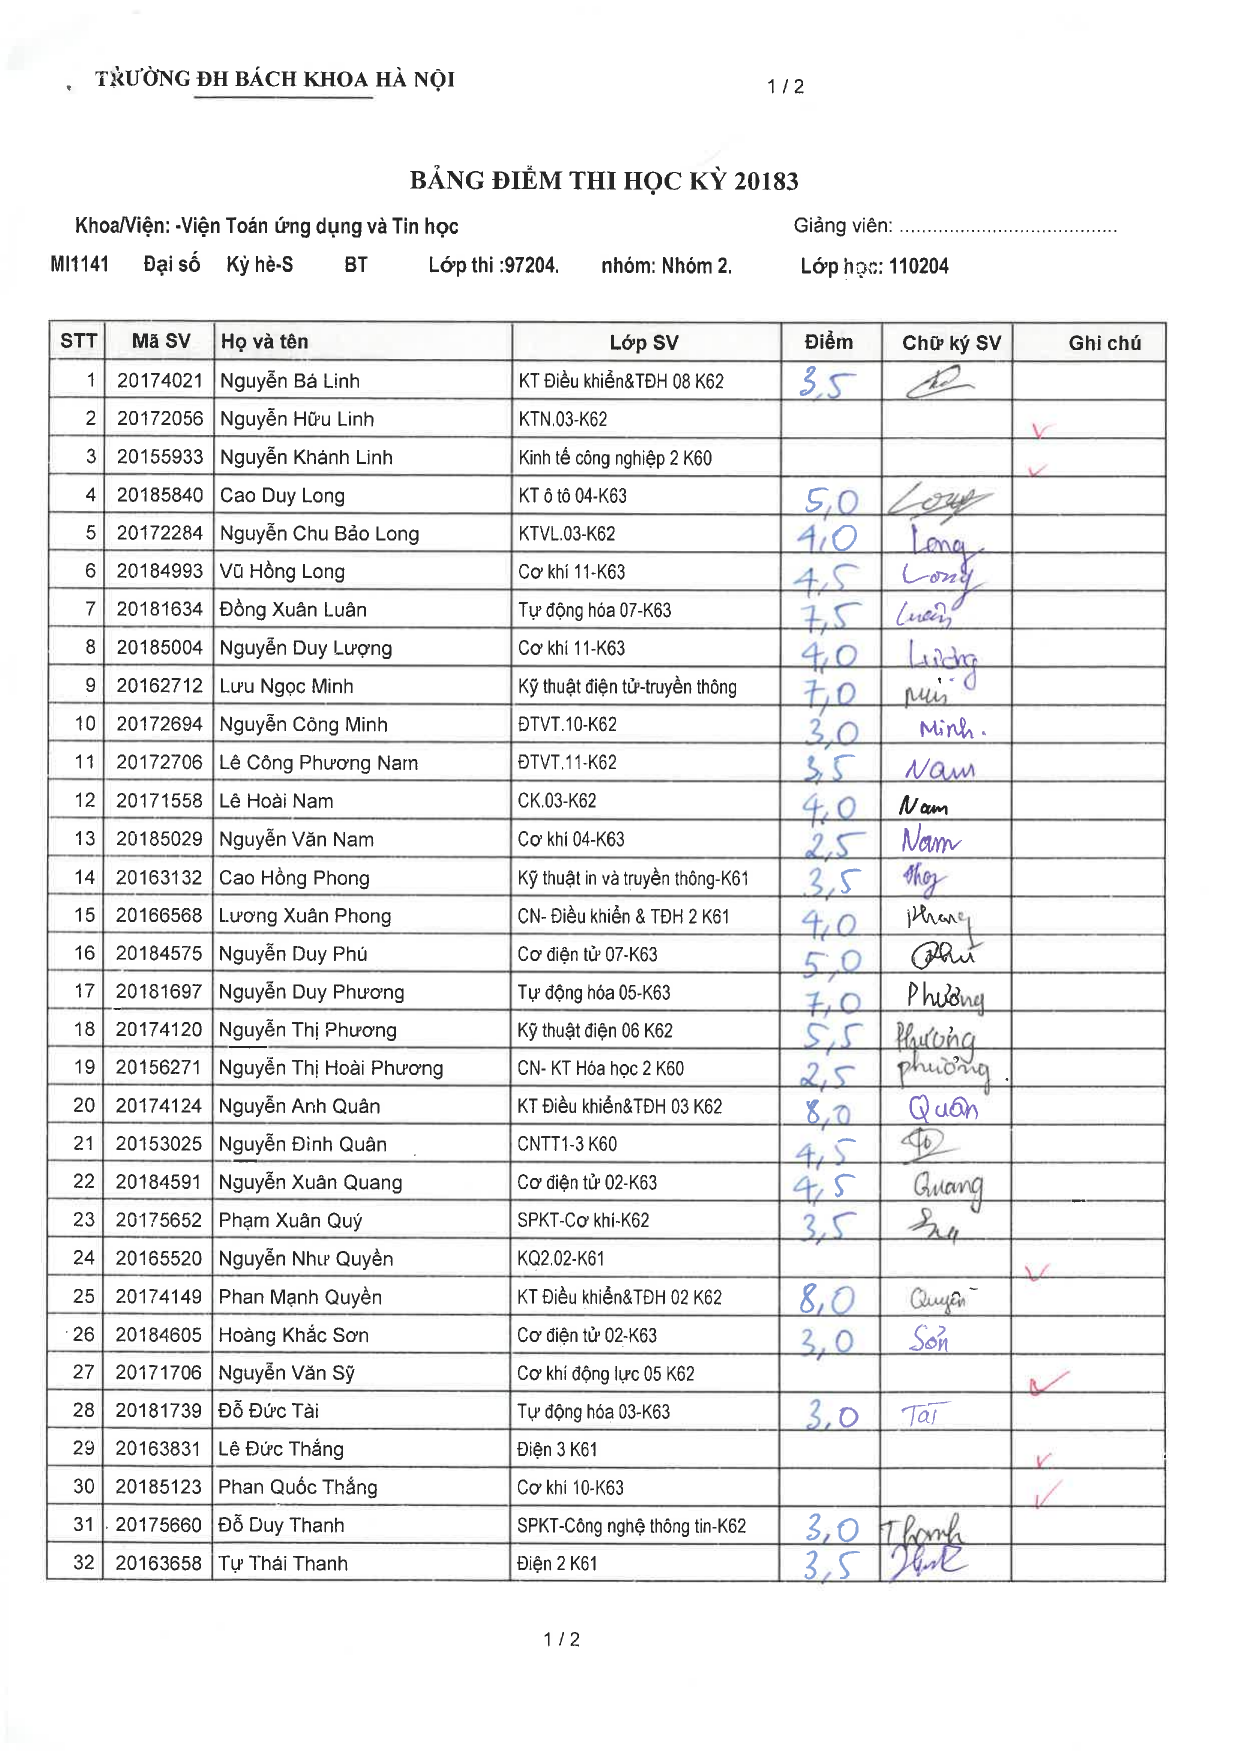 TRƯỜNG ĐH BÁCH KHOA HÀ NỘI 1 / 2
BẢNG ĐIỂM THI HỌC KỲ 20183
Khoa/Viện: -Viện Toán ứng dụng và Tin học Giảng viên: .......................................
MI1141 Đại số Kỳ hè-S BT Lớp thi :97204. nhóm: Nhóm 2. Lớp học: 110204
STT Mã SV Họ và tên Lớp SV Điểm Chữ ký SV Ghi chú
1 20174021 Nguyễn Bá Linh KT Điều khiển&TĐH 08 K62 3,5
2 20172056 Nguyễn Hữu Linh KTN.03-K62
3 20155933 Nguyễn Khánh Linh Kinh tế công nghiệp 2 K60
4 20185840 Cao Duy Long KT ô tô 04-K63 5,0 Long
5 20172284 Nguyễn Chu Bảo Long KTVL.03-K62 4,0 Long
6 20184993 Vũ Hồng Long Cơ khí 11-K63 4,5 Long
7 20181634 Đồng Xuân Luân Tự động hóa 07-K63 7,5 Luân
8 20185004 Nguyễn Duy Lượng Cơ khí 11-K63 4,0 Lượng
9 20162712 Lưu Ngọc Minh Kỹ thuật điện tử-truyền thông 7,0
10 20172694 Nguyễn Công Minh ĐTVT.10-K62 3,0 Minh.
11 20172706 Lê Công Phương Nam ĐTVT.11-K62 3,5 Nam
12 20171558 Lê Hoài Nam CK.03-K62 4,0 Nam
13 20185029 Nguyễn Văn Nam Cơ khí 04-K63 2,5 Nam
14 20163132 Cao Hồng Phong Kỹ thuật in và truyền thông-K61 3,5
15 20166568 Lương Xuân Phong CN- Điều khiển & TĐH 2 K61 4,0 phong
16 20184575 Nguyễn Duy Phú Cơ điện tử 07-K63 5,0 Phú
17 20181697 Nguyễn Duy Phương Tự động hóa 05-K63 7,0 Phương
18 20174120 Nguyễn Thị Phương Kỹ thuật điện 06 K62 5,5 Phương
19 20156271 Nguyễn Thị Hoài Phương CN- KT Hóa học 2 K60 2,5 phương
20 20174124 Nguyễn Anh Quân KT Điều khiển&TĐH 03 K62 8,0 Quân
21 20153025 Nguyễn Đình Quân CNTT1-3 K60 4,5
22 20184591 Nguyễn Xuân Quang Cơ điện tử 02-K63 4,5 Quang
23 20175652 Phạm Xuân Quý SPKT-Cơ khí-K62 3,5
24 20165520 Nguyễn Như Quyền KQ2.02-K61
25 20174149 Phan Mạnh Quyền KT Điều khiển&TĐH 02 K62 8,0 Quyền
26 20184605 Hoàng Khắc Sơn Cơ điện tử 02-K63 3,0 Sơn
27 20171706 Nguyễn Văn Sỹ Cơ khí động lực 05 K62
28 20181739 Đỗ Đức Tài Tự động hóa 03-K63 3,0 Tài
29 20163831 Lê Đức Thắng Điện 3 K61
30 20185123 Phan Quốc Thắng Cơ khí 10-K63
31 20175660 Đỗ Duy Thanh SPKT-Công nghệ thông tin-K62 3,0 Thanh
32 20163658 Tự Thái Thanh Điện 2 K61 3,5
1 / 2